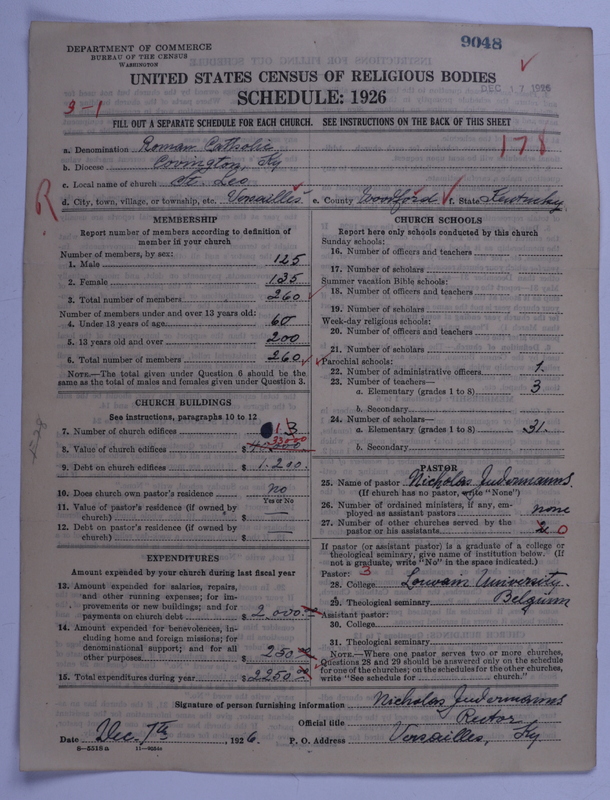 DEPARTMENT OF COMMERCE
BUREAU OF THE CENSUS
WASHINGTON
9048
DEC 17 1926
UNITED STATES CENSUS OF RELIGIOUS BODIES
SCHEDULE: 1926
3-1
FILL OUT A SEPARATE SCHEDULE FOR EACH CHURCH. SEE INSTRUCTIONS ON THE BACK OF THIS SHEET
178
a. Denomination Roman Catholic
b. Diocese Covington, Ky
c. Local name of church St. Leo
d. City, town, village, or township, etc. Versailles e. County Woodford f. State Kentucky
R
MEMBERSHIP
Report number of members according to definition of member in your church
Number of members, by sex:
1. Male 125
2. Female 135
3. Total number of members 260
Number of members under and over 13 years old:
4. Under 13 years of age 60
5. 13 years old and over 200
6. Total number of members 260
NOTE.—The total given under Question 6 should be the
same as the total of males and females given under Question 3.
CHURCH BUILDINGS
See instructions, paragraphs 10 to 12
7. Number of church edifices 1 3
33000
8. Value of church edifices $
9. Debt on church edifices $ 1,200.
10. Does church own pastor's residence no
Yes or No
11. Value of pastor's residence (if owned by
church) $ —
12. Debt on pastor's residence (if owned by
church) $ —
EXPENDITURES
Amount expended by your church during last fiscal year
13. Amount expended for salaries, repairs,
and other running expenses; for im-
provements or new buildings; and for
payments on church debt $ 2,000.
14. Amount expended for benevolences, in-
cluding home and foreign missions; for
denominational support; and for all
other purposes $ 250
15. Total expenditures during year $ 2250
CHURCH SCHOOLS
Report here only schools conducted by this church
Sunday schools:
16. Number of officers and teachers
17. Number of scholars
Summer vacation Bible schools:
18. Number of officers and teachers
19. Number of scholars
Week-day religious schools:
20. Number of officers and teachers
21. Number of scholars
Parochial schools:
22. Number of administrative officers 1.
23. Number of teachers—
a. Elementary (grades 1 to 8) 3
b. Secondary
24. Number of scholars—
a. Elementary (grades 1 to 8) 31.
b. Secondary
PASTOR
25. Name of pastor Nicholas Judermanns
(If church has no pastor, write "None")
26. Number of ordained ministers, if any, em-
ployed as assistant pastors none
27. Number of other churches served by the
pastor or his assistants 0
If pastor (or assistant pastor) is a graduate of a college or
theological seminary, give name of institution below. (If
not a graduate, write "No" in the space indicated.)
Pastor: 3
28. College Louvain University
29. Theological seminary Belgium
Assistant pastor:
30. College
31. Theological seminary
NOTE.—Where one pastor serves two or more churches,
Questions 28 and 29 should be answered only on the schedule
for one of the churches; on the schedules for the other churches,
write "See schedule for church."
Signature of person furnishing information Nicholas Judermanns
Official title Rector
Date Dec. 7th, 1926. P. O. Address Versailles, Ky
8—5518a 11—9054